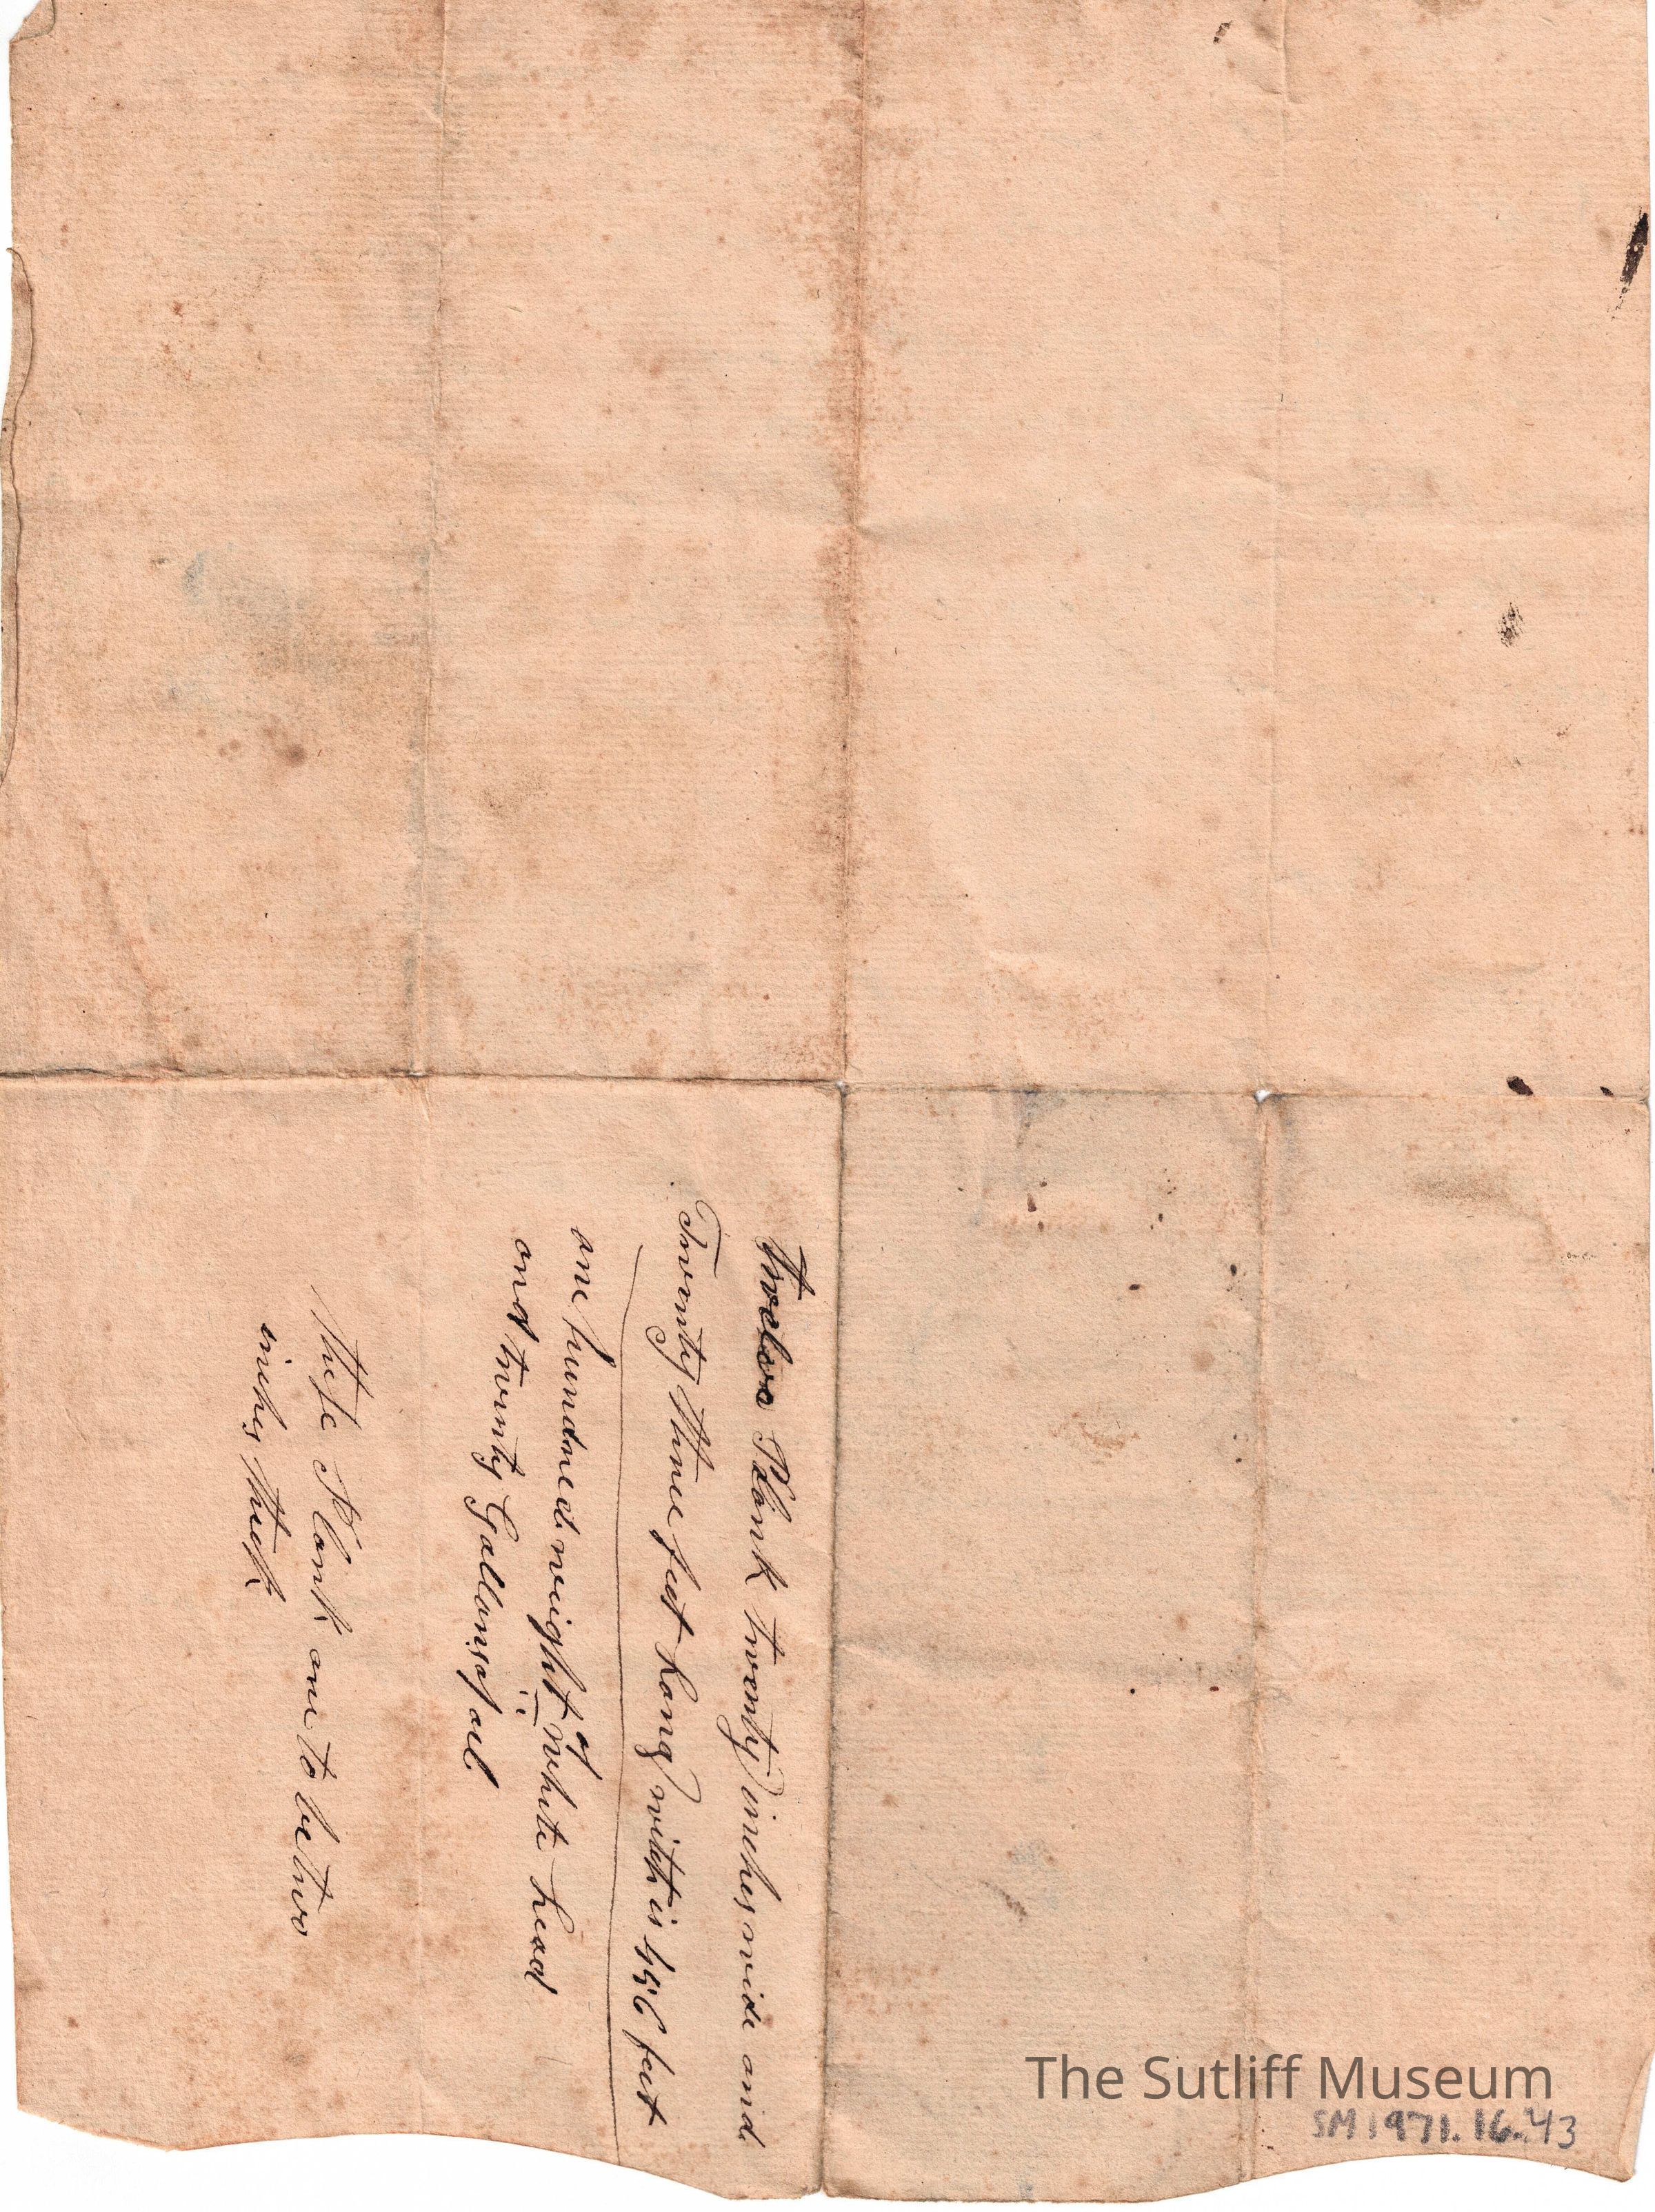 twelve Plank twenty inches wide and
Twenty three feet Long witch is 456 feet
one hundred weight of white Lead
and twenty Gallons of oil
these Plank are to be two
inches thick
The Sutliff Museum
SM 1971.16.43